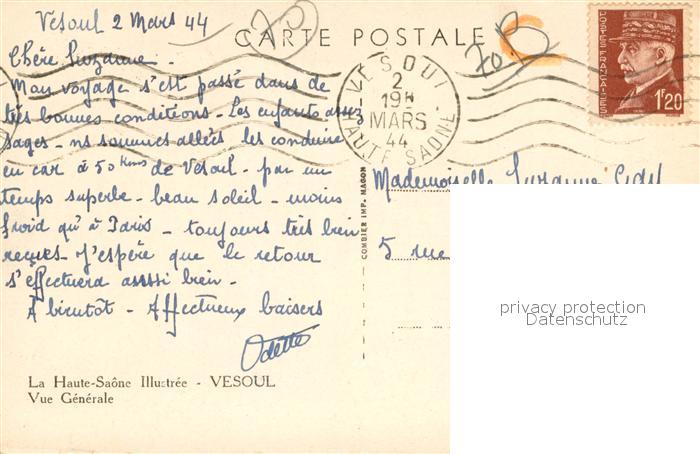 Vesoul 2 Mars 44
CARTE POSTALE
Chère Suzanne -
Mon voyage s'est passé dans de
très bonnes conditions - Les enfants assez
sages - ns sommes allées les conduire
en car à 50 kms de Vesoul - par un
temps superbe - beau soleil - moins
froid qu'à Paris - toujours très bien
reçues - J'espère que le retour
s'effectuera aussi bien -
A bientôt - Affectueux baisers
Odette
La Haute-Saône Illustrée - VESOUL
Vue Générale
70
70 B
VESOUL
2
19H
MARS
44
HAUTE SAÔNE
POSTES FRANÇAISES
1F20
COMBIER IMP. MACON
Mademoiselle Suzanne
5 rue
privacy protection
Datenschutz